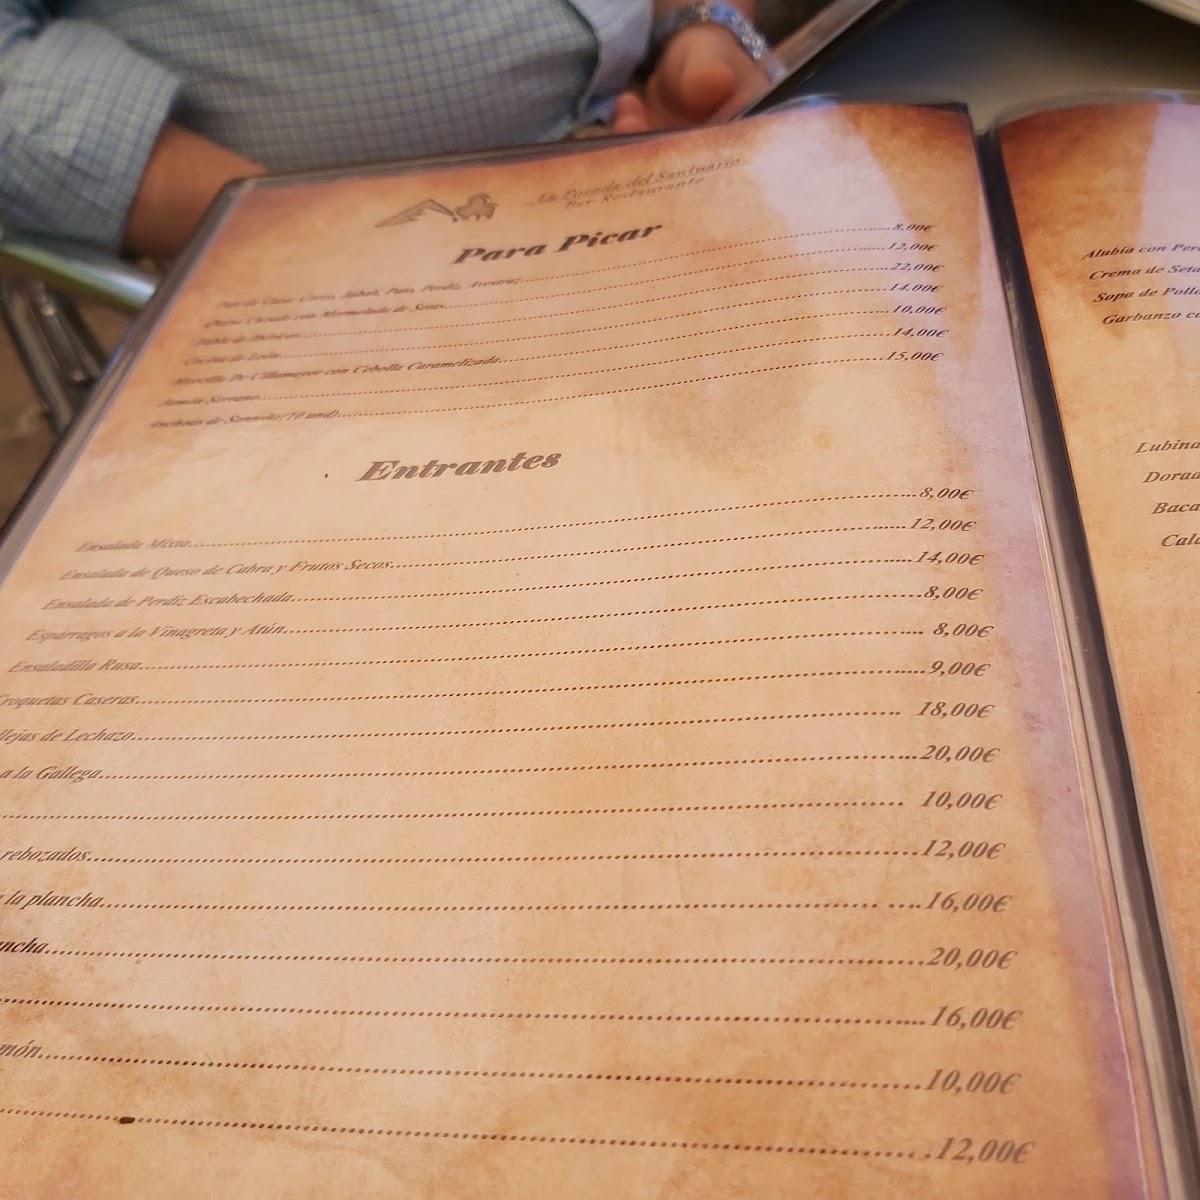 La Posada del Santuario
Bar-Restaurante
Para Picar
Pate de Caza: Ciervo, Jabalí, Pato, Perdiz, Avestruz..........8,00€
Queso Curado con Mermelada de Setas..........12,00€
Tabla de Ibéricos..........22,00€
Cecina de León..........14,00€
Morcilla De Cillamayor con Cebolla Caramelizada..........10,00€
Jamón Serrano..........14,00€
Anchoas de Santoña(10 und)..........15,00€
Entrantes
Ensalada Mixta..........8,00€
Ensalada de Queso de Cabra y Frutos Secos..........12,00€
Ensalada de Perdiz Escabechada..........14,00€
Espárragos a la Vinagreta y Atún..........8,00€
Ensaladilla Rusa.......... 8,00€
Croquetas Caseras..........9,00€
llejas de Lechazo.......... 18,00€
a la Gallega..........20,00€
.......... 10,00€
rebozados..........12,00€
a la plancha.......... ....16,00€
ncha..........20,00€
..........16,00€
món..........10,00€
.......... .12,00€
Alubia con Per
Crema de Seta
Sopa de Poll
Garbanzo c
Lubina
Dorad
Baca
Cala